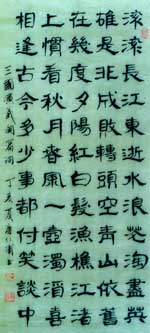 滚滚長江東逝水浪花淘盡英
雄是非成敗轉頭空青山依舊
在幾度夕陽紅白髮漁樵江渚
上慣看秋月春風一壺濁酒喜
相逢古今多少事都付笑談中
三國演義開篇詞 丁亥夏